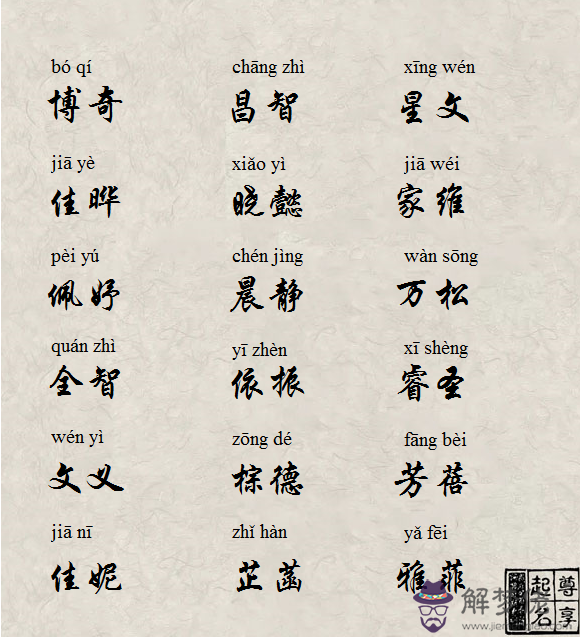 bó qí chāng zhì xīng wén
博奇 昌智 星文
jiā yè xiǎo yì jiā wéi
佳晔 晓懿 家维
pèi yú chén jìng wàn sōng
佩妤 晨静 万松
quán zhì yī zhèn xī shèng
全智 依振 睿圣
wén yì zōng dé fāng bèi
文义 棕德 芳蓓
jiā nī zhǐ hàn yǎ fēi
佳妮 芷菡 雅菲
尊享
起名
解梦